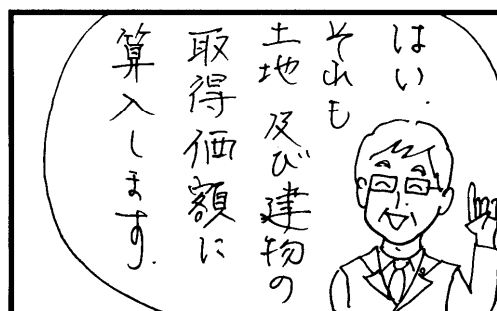 はい.
それも
土地 及び建物の
取得価額に
算入します.